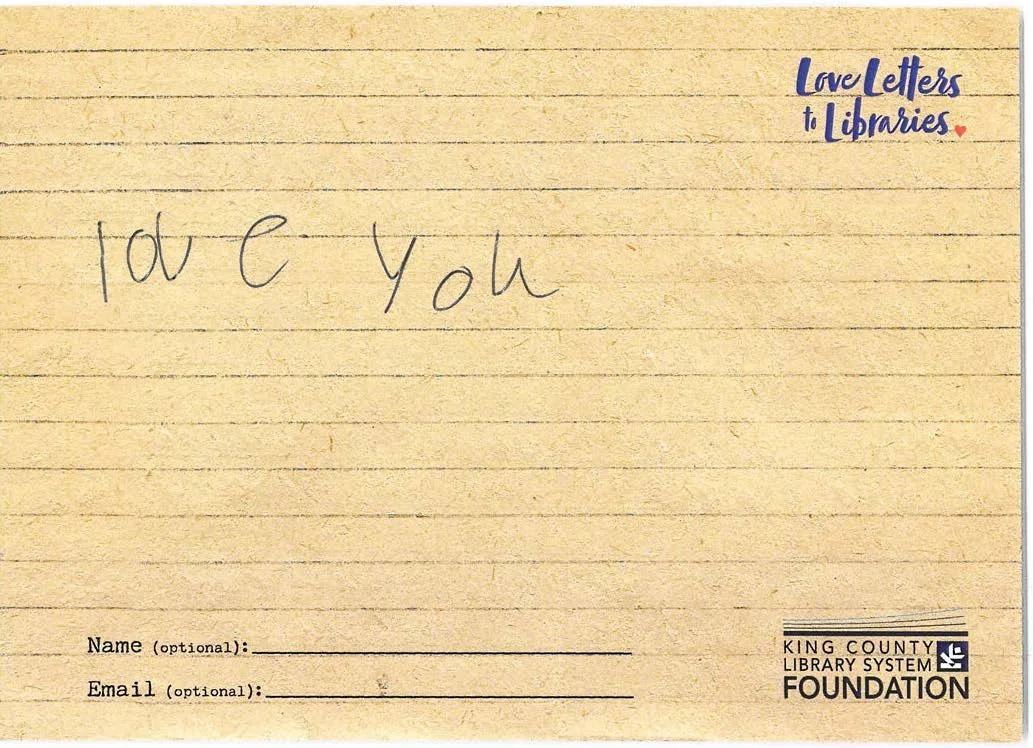 Love Letters
to Libraries
love you
Name (optional):
Email (optional):
KING COUNTY
LIBRARY SYSTEM
FOUNDATION